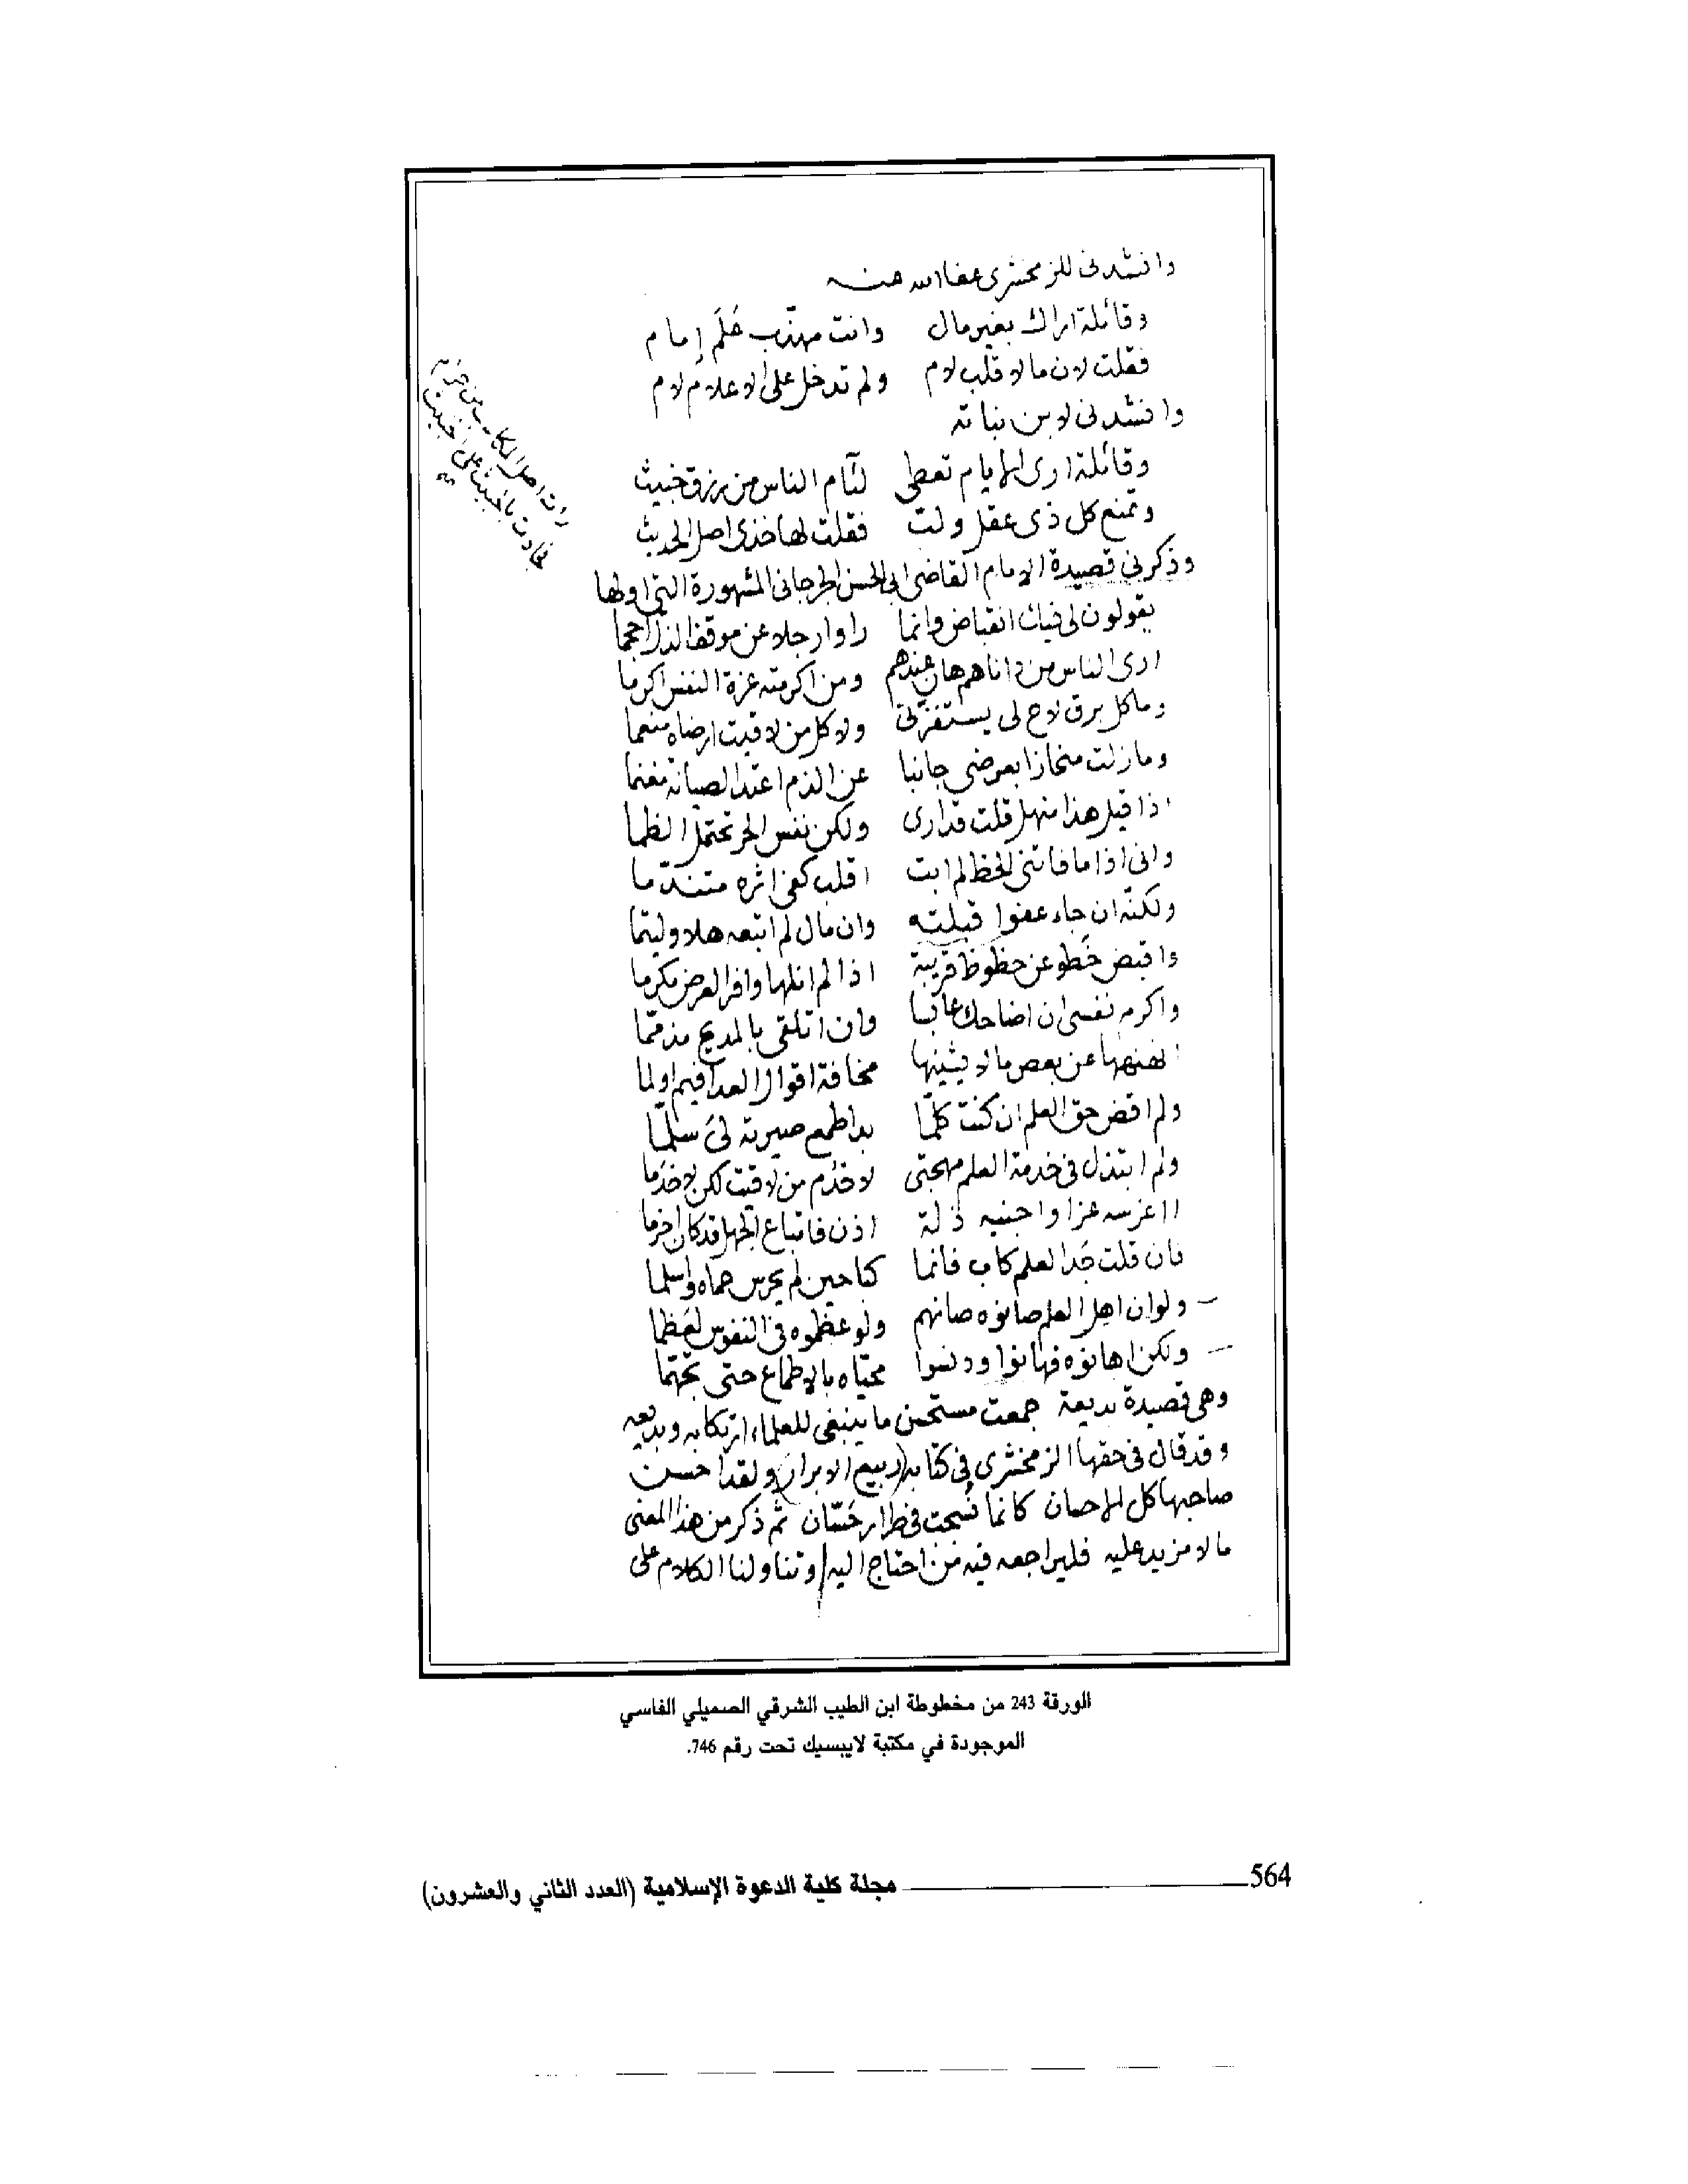 وانشدنى للزمخشرى عفا الله عنه
وقائلة اراك بغير مال وانت مهذّب عَلَم إمام
فقلت لان مالا قلب لام ولم تدخل على الاعلام لام
وانشدنى لابن نباته
وقائلة ارى الايام تعطى لئآم الناس من رزق خبيث
وتمنع كل ذى عقل ولب فقلت لها خذى اصل الحديث
رات اصل المكاسب من حرام
فجادت بالخبيث على الخبيث
وذكرنى قصيدة الامام القاضى ابى الحسن الجرجانى المشهورة التى اولها
يقولون لى فيك انقباض وانما راوا رجلا عن موقف الذل احجما
ارى الناس من داناهم هان عندهم ومن اكرمته عزة النفس اكرما
وما كل برق لاح لى يستفزنى ولا كل من لاقيت ارضاه منعما
وما زلت منحازا بعرضى جانبا عن الذم اعتد الصيانة مغنما
اذا قيل هذا منهل قلت قد ارى ولكن نفس الحر تحتمل الظما
وانى اذا ما فاتنى الحظ لم ابت اقلب كفى اثره متندّما
ولكنّه ان جاء عفوا قبلته وان مال لم اتبعه هلا وليتما
واقبض خَطوى عن حظوظ قريبة اذا لم انلها وافر العرض مكرما
واكرم نفسى ان اضاحك عابسا وان اتلقى بالمديح مذمّما
انهنهها عن بعض ما لا يشينها مخافة اقوال العدا فيم او لما
ولم اقض حق العلم ان كنت كلّما بدا طمع صيرته لىَ سلّما
ولم ابتذل فى خدمة العلم مهجتى لاخدم من لاقيت لكن لاخدَما
ااغرسه عزا واجنيه ذلة اذن فاتباع الجهل قد كان احزما
فان قلت جَد العلم كاب فانما كبا حين لم يحرس حماه واسلما
ولو ان اهل العلم صانوه صانهم ولو عظموه فى النفوس لعَظما
ولكن اهانوه فهانوا ودنسوا محيّاه بالاطماع حتى تجهّما
وهى قصيدة بديعة جمعت مستحسن ما ينبغى للعلماء ارتكابه وبديعه
وقد قال فى حقها الزمخشرى فى كتابه (ربيع الابرار) ولقد احسن
صاحبها كل الاحسان كانما نُسجت فى طراز حَسّان ثم ذكر من هذا المعنى
ما لا مزيد عليه فليراجعه فيه من احتاج اليه وتناولنا الكلام على
الورقة 243 من مخطوطة ابن الطيب الشرقي الصميلي الفاسي
الموجودة في مكتبة لايبسيك تحت رقم 746.
564 مجلة كلية الدعوة الإسلامية (العدد الثاني والعشرون)